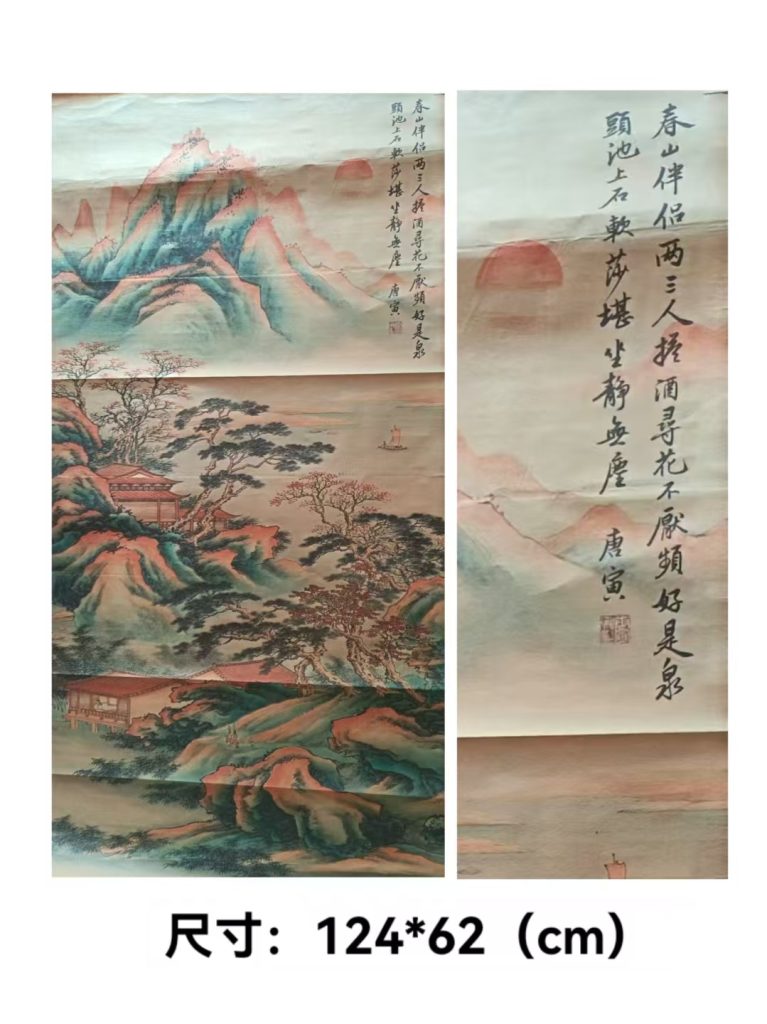 春山伴侣两三人擔酒尋花不厭頻好是泉
頭池上石軟莎堪坐靜無塵
唐寅
春山伴侣两三人擔酒尋花不厭頻好是泉
頭池上石軟莎堪坐靜無塵
唐寅
尺寸：124*62（cm）